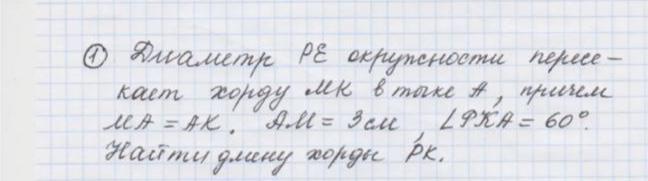 ① Диаметр PE окружности пересе-
кает хорду MK в точке A, причем
MA = AK. AM = 3 см, ∠PKA = 60°.
Найти длину хорды PK.